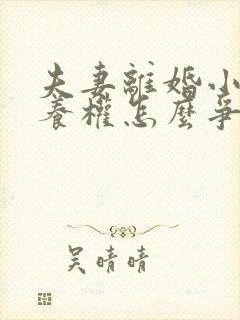 夫妻離婚小
養權怎麼爭
吳晴晴